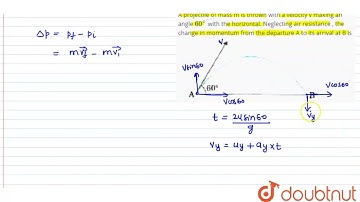 A projectile of mass m is thrown with a velocity v making an
angle 60° with the horizontal. Neglecting air resistance, the
change in momentum from the departure A to its arrival at B is
Δp = pf - pi
= mv⃗f - mv⃗i
v
vsin60
60°
A
vcos60
B
vcos60
vy
t = 2usin60/g
vy = uy + ay x t
doubtnut